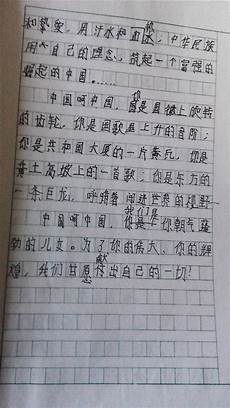 和挚爱，用汗水和血水，中华民族
用个自己的理念，筑起一个富强的
崛起的中国……
中国呵中国，你是直插上旋转
的齿轮，你是国歌直上升的音阶；
你是共和国大厦的一片 你是
黄土高坡上的一首歌；你是东方的
一条巨龙，呼啸着 闯进世界的视野
中国呵中国，我们是你朝气蓬
勃的儿女。为了你的伟大，你的辉
煌，我们甘愿献出自己的一切！